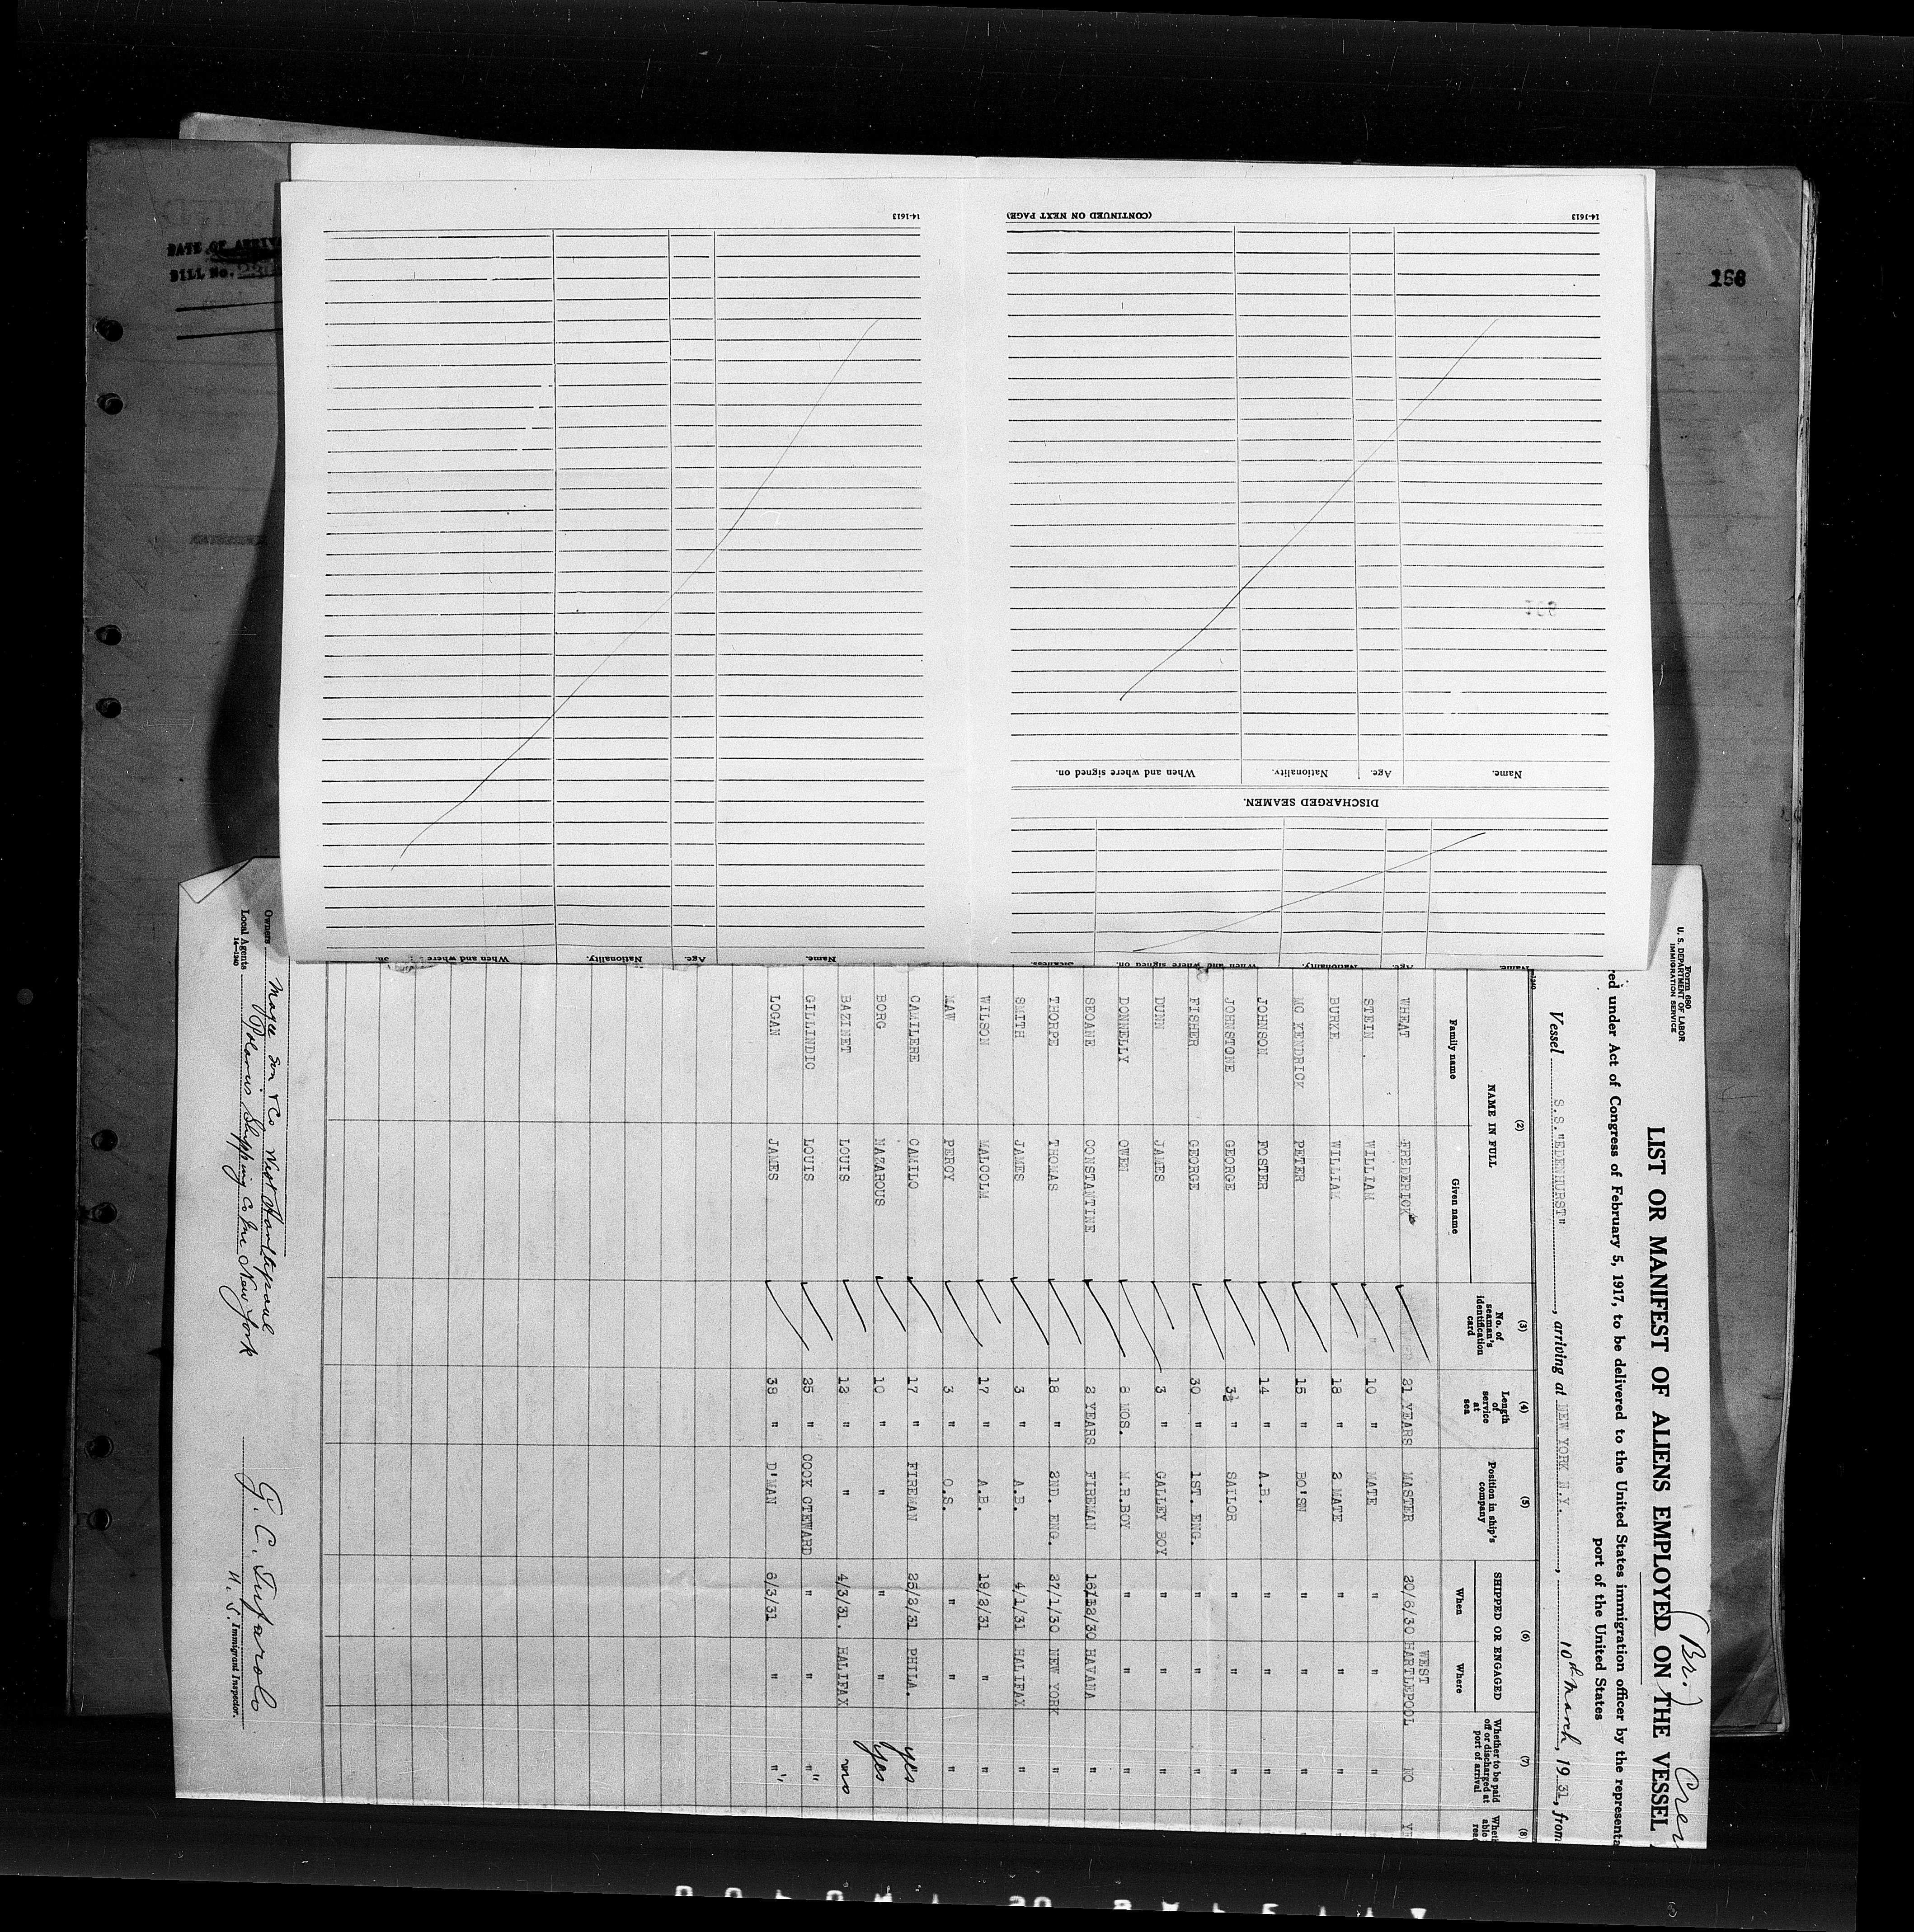 168
DATE OF ARRIVA
BILL No.
14-1613
(CONTINUED ON NEXT PAGE)
14-1613
Name.
Age.
Nationality.
When and where signed on.
DISCHARGED SEAMEN.
Name.
Age.
Nationality.
When and where signed on.
Sickness.
Name.
Age.
Nationality.
When and where
Form 680
U. S. DEPARTMENT OF LABOR
IMMIGRATION SERVICE
(Br.) Crew
LIST OR MANIFEST OF ALIENS EMPLOYED ON THE VESSEL
red under Act of Congress of February 5, 1917, to be delivered to the United States immigration officer by the representa
port of the United States
Vessel S.S."EDENHURST", arriving at NEW YORK N.Y., 10th March, 1931, from
(2) (3) (4) (5) (6) (7) (8)
NAME IN FULL
Family name Given name
No. of seaman's identification card
Length of service at sea
Position in ship's company
SHIPPED OR ENGAGED
When Where
Whether to be paid off or discharged at port of arrival
WHEAT FREDERICK 21 YEARS MASTER 20/6/30 WEST HARTLEPOOL NO
STEIN WILLIAM 10 " MATE " " "
BURKE WILLIAM 18 " 2 MATE " " "
MC KENDRICK PETER 15 " BO'SN " " "
JOHNSON FOSTER 14 " A.B. " " "
JOHNSTONE GEORGE 3½ " SAILOR " " "
FISHER GEORGE 30 " 1ST. ENG. " " "
DUNN JAMES 3 " GALLEY BOY " " "
DONNELLY OWEN 8 MOS. M.R.BOY " " "
SEOANE CONSTANTINE 2 YEARS FIREMAN 16/12/30 HAVANA "
THORPE THOMAS 18 " 2ND. ENG. 27/1/30 NEW YORK "
SMITH JAMES 3 " A.B. 4/1/31 HALIFAX "
WILSON MALCOLM 17 " A.B. 19/2/31 " "
MAW PERCY 3 " O.S. " " "
CAMILERE CAMILO 17 " FIREMAN 25/2/31 PHILA. yes
BORG NAZAROUS 10 " " " " yes
BAZINET LOUIS 12 " " 4/3/31. HALIFAX no
GILLINDIC LOUIS 25 " COOK CTEWARD " " " "
LOGAN JAMES 38 " D'MAN 6/3/31 " " "
Owners Magee Son & Co West Hartlepool
Local Agents Polarus Shipping Co Inc New York
14-1240
G. C. Tufarolo
U. S. Immigrant Inspector.